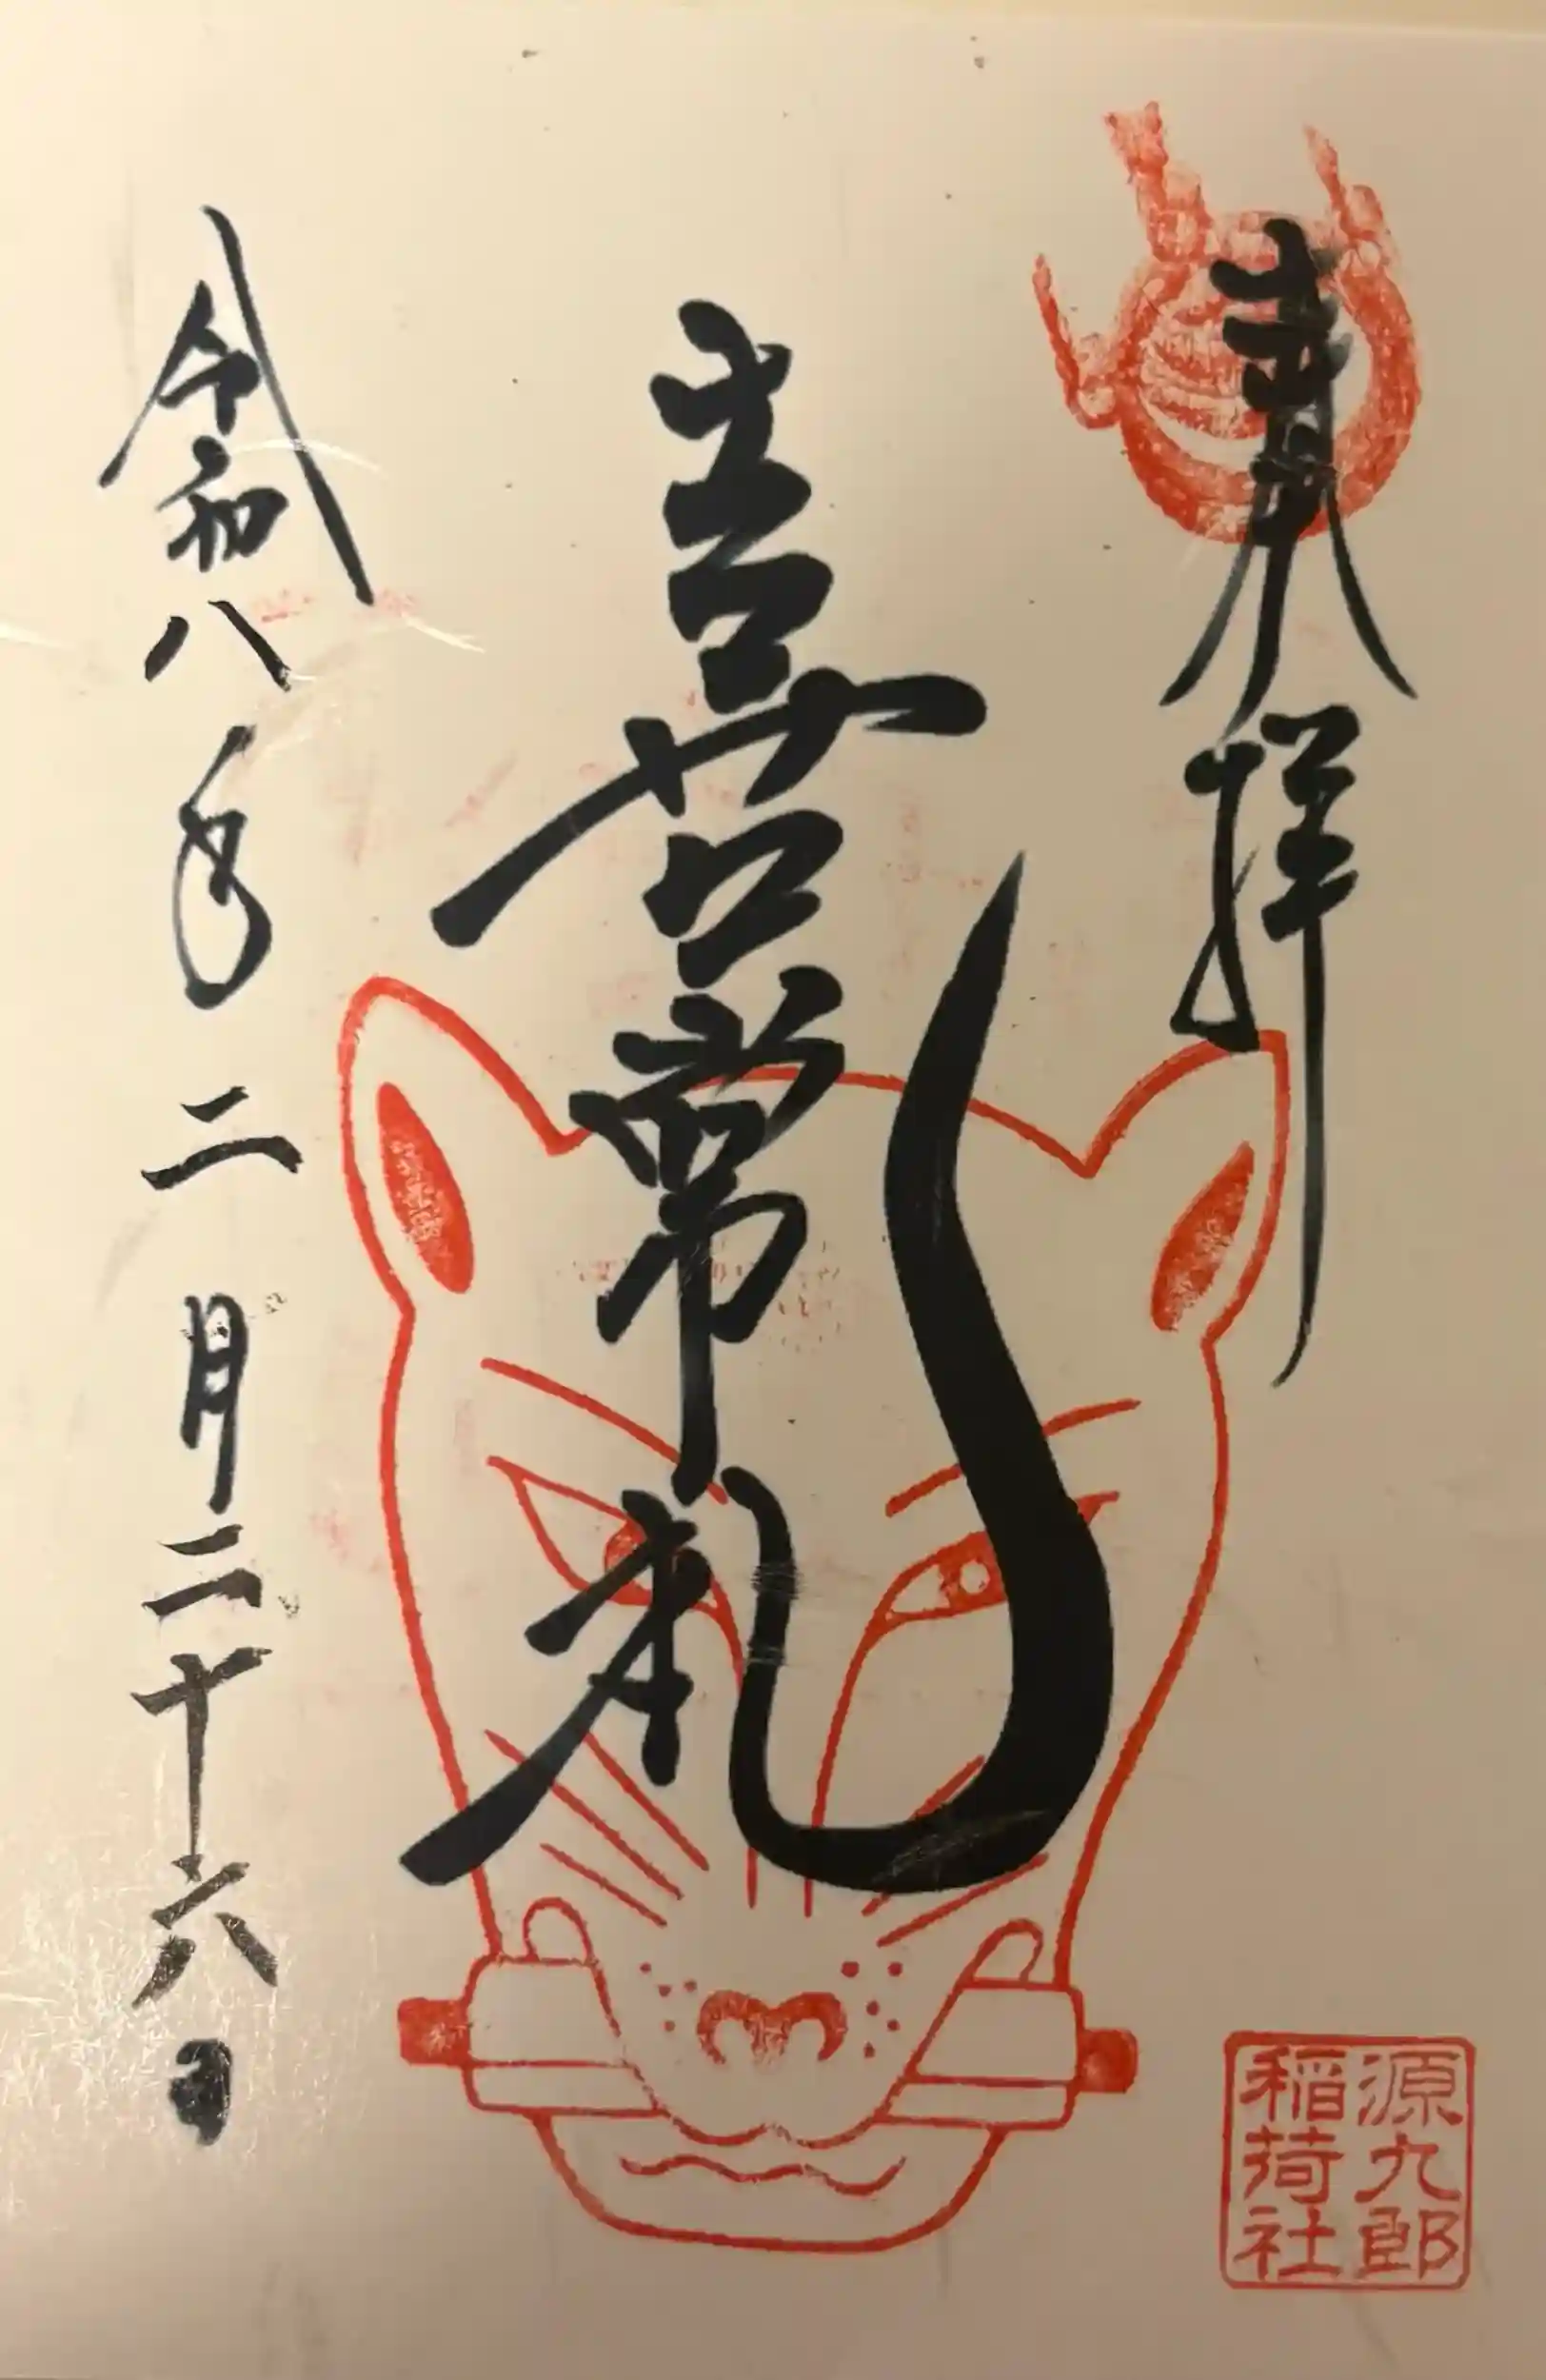 奉拝
喜常
令和八年二月二十六日
源九郎
稲荷社